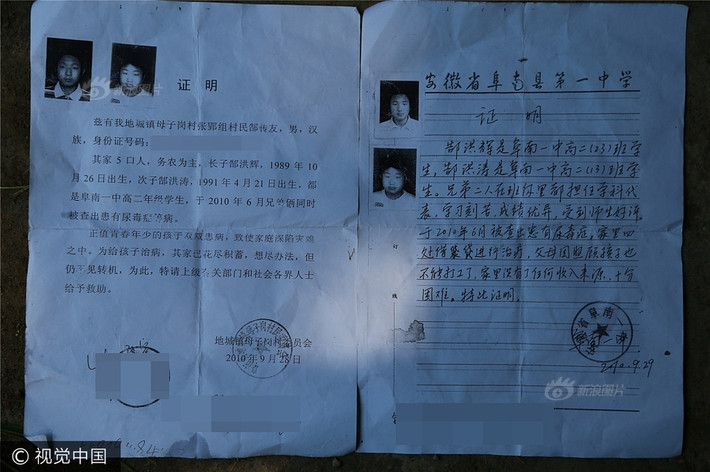 证明
兹有我地城镇母子岗村张郢组村民郜传友，男，汉
族，身份证号码：
其家 5 口人，务农为主，长子郜洪辉，1989 年 10
月 26 日出生，次子郜洪涛，1991 年 4 月 21 日出生，都
是阜南一中高二年级学生，于 2010 年 6 月兄弟俩同时
被查出患有尿毒症等病。
正值青春年少的孩子双双患病，致使家庭深陷灾难
之中。为给孩子治病，其家已花尽积蓄，想尽办法，但
仍不见转机，为此，特请上级有关部门和社会各界人士
给予救助。
地城镇母子岗村委员会
2010 年 9 月 28 日
安徽省阜南县第一中学
证明
郜洪辉是阜南一中高二(23)班学
生，郜洪涛是阜南一中高二(13)班学
生。兄弟二人在班佰里都担任学科代
表，学习刻苦，成绩优异，受到师生好评。
于2010年6月被查出患有尿毒症，家里四
处借款贷进行治疗，父母因照顾孩子也
不能打工了，家里没有了任何收入来源，十分
困难。特此证明。
订
线
安徽省阜南
2010.9.29
新浪图片
新浪图片
© 视觉中国